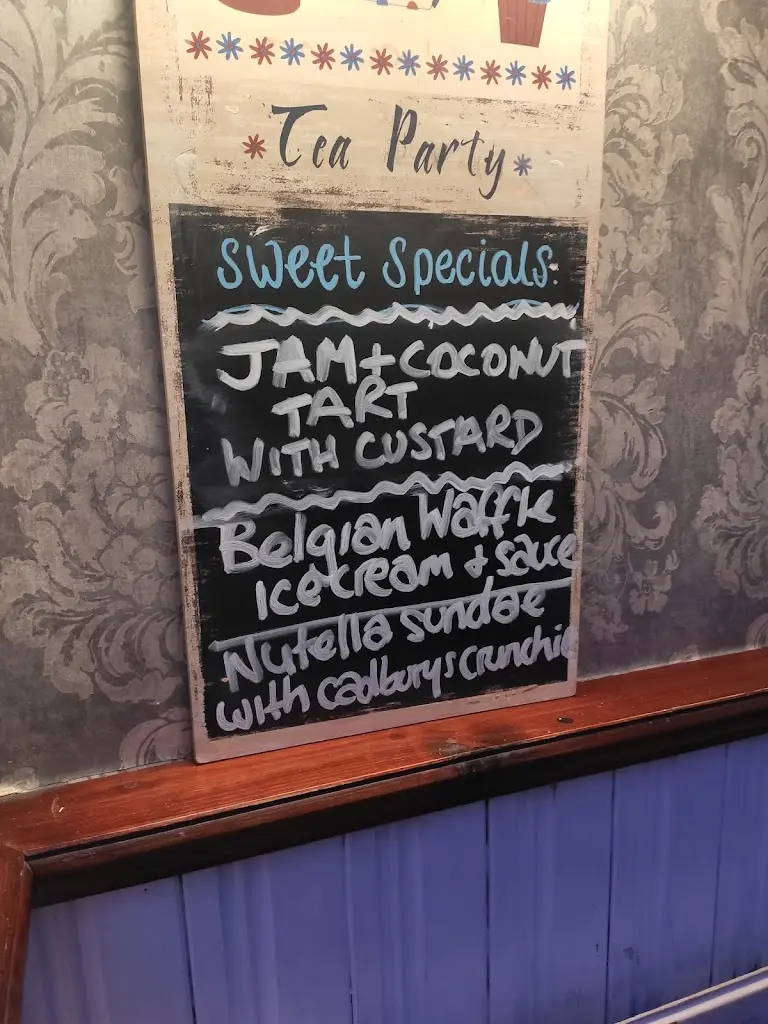 Tea Party
Sweet Specials.
JAM + COCONUT
TART
WITH CUSTARD
Belgian Waffle
Icecream + sauce
Nutella sundae
with cadburys crunchie